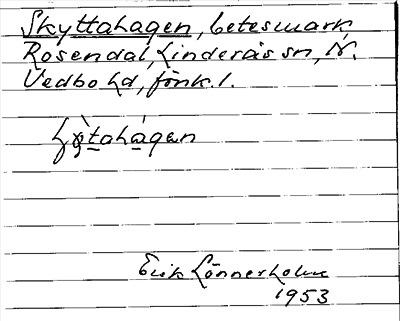 Skyttahagen, betesmark
Rosendal, Linderås sn, N.
Vedbo hd, Jönk. l.
Erik Lönnerholm
1953